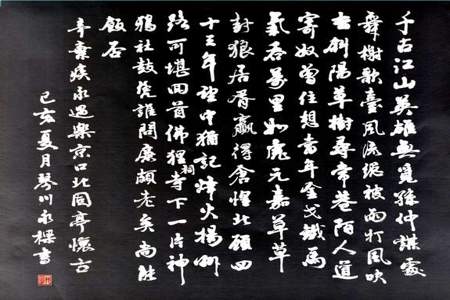 千古江山英雄無覓孫仲謀處
舞榭歌臺風流總被雨打風吹
去斜陽草樹尋常巷陌人道
寄奴曾住想當年金戈鐵馬
氣吞萬里如虎元嘉草草
封狼居胥贏得倉惶北顧四
十三年望中猶記烽火揚州
路可堪回首佛狸寺下一片神
祠
鴉社鼓憑誰問廉頗老矣尚能
飯否
辛棄疾永遇樂京口北固亭懷古
己亥夏月琴川永標書